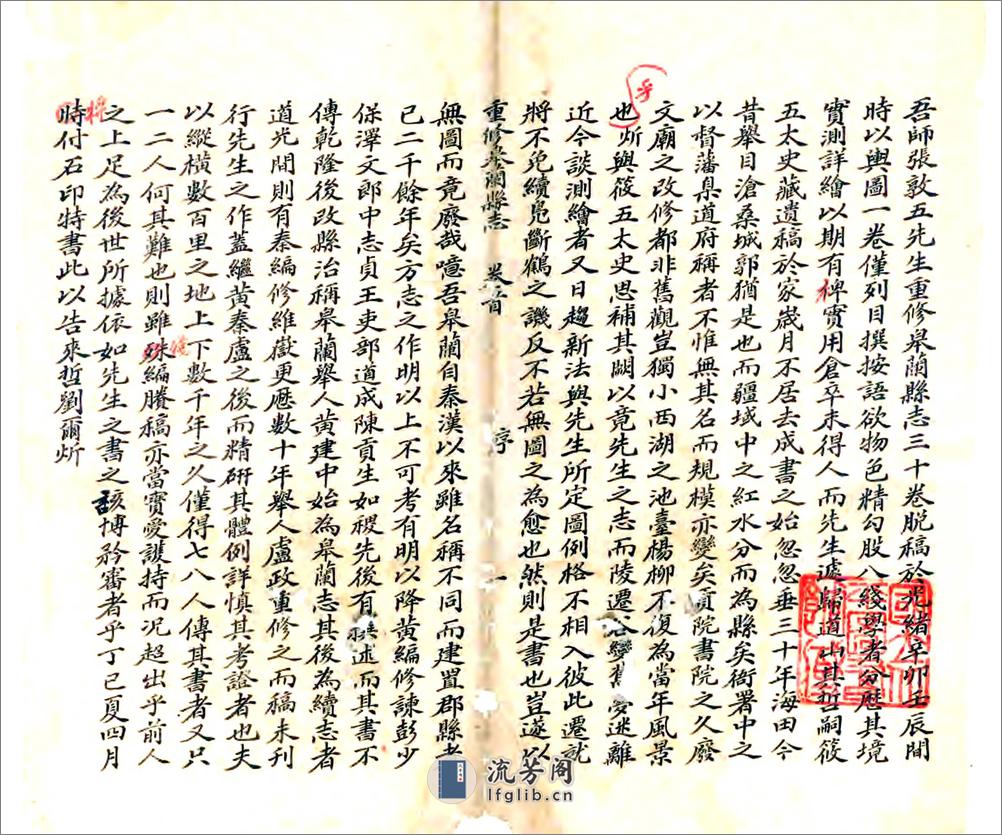 吾師張敦五先生重修皋蘭縣志三十卷脫稿於光緒辛卯壬辰間
時以輿圖一卷僅列目撰按語欲物色精勾股八綫學者分歷其境
實測詳繪以期有裨實用倉卒未得人而先生遽歸道山其哲嗣筱
五太史藏遺稿於家歲月不居去成書之始忽忽垂三十年海田今
昔舉目滄桑城郭猶是也而疆域中之紅水分而為縣矣衙署中之
以督藩臬道府稱者不惟無其名而規模亦變矣貢院書院之久廢
文廟之改修都非舊觀豈獨小西湖之池臺楊柳不復為當年風景
也
乎
炘與筱五太史思補其闕以竟先生之志而陵遷谷變迷離
近今談測繪者又日趨新法與先生所定圖例格不相入彼此遷就
將不免續鳧斷鶴之譏反不若無圖之為愈也然則是書也豈遂以
重修皋蘭縣志 卷首 序 一
無圖而竟廢哉噫吾皋蘭自秦漢以來雖名稱不同而建置郡縣者
已二千餘年矣方志之作明以上不可考有明以降黃編修諫彭少
保澤文郎中志貞王吏部道成陳貢生如稷先後有述而其書不
傳乾隆後改縣治稱皋蘭舉人黃建中始為皋蘭志其後為續志者
道光間則有秦編修維嶽更歷數十年舉人盧政重修之而稿未刊
行先生之作蓋繼黃秦盧之後而精研其體例詳慎其考證者也夫
以縱橫數百里之地上下數千年之久僅得七八人傳其書者又只
一二人何其難也則雖殊編賸稿亦當寶愛護持而况超出乎前人
殘
之上足為後世所據依如先生之書之該博矜審者乎丁巳夏四月
時付石印特書此以告來哲劉爾炘
將
流芳阁
lfglib.cn